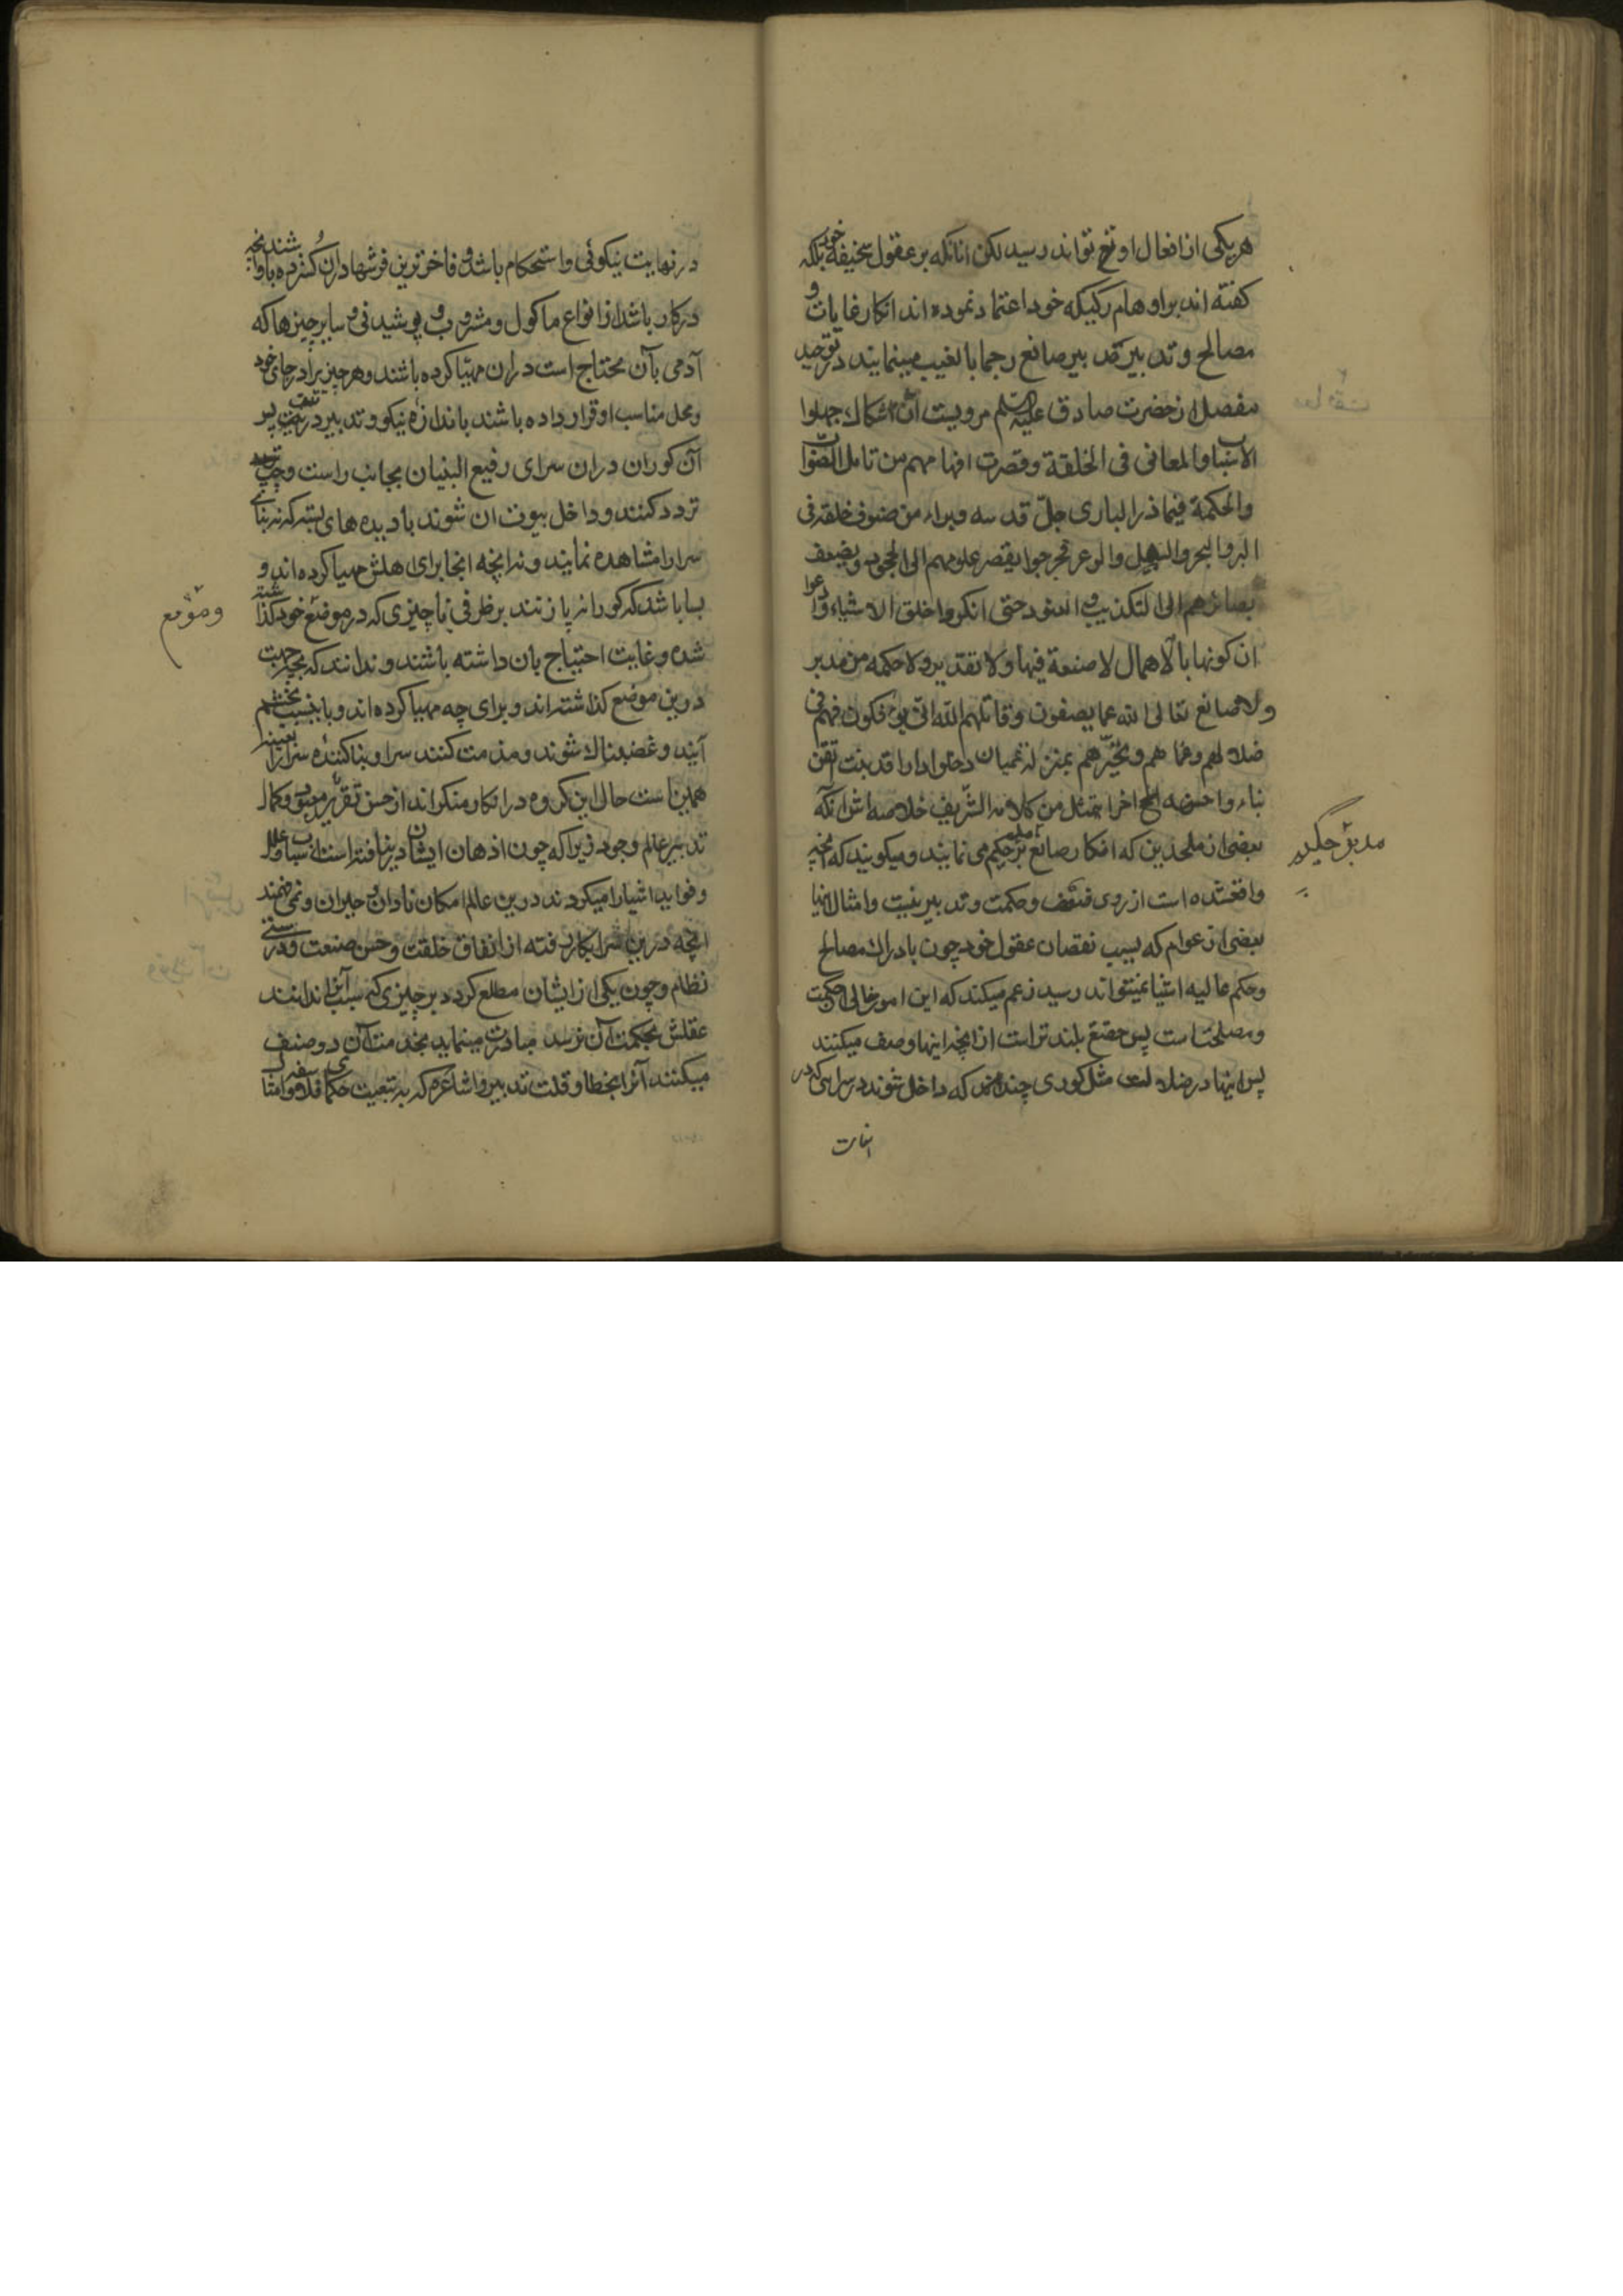 هر یکی از افعال او تع تواند رسید لکن انانکه بر عقول سخیفه خود بلکه
کفته اند بر اوهام رکیکه خود اعتماد نموده اند انکار غایات و
مصالح و تدبیر صانع رجما بالغیب مینمایند در توحید
مفضل از حضرت صادق علیه السلم مرویست ان الشکاک جهلوا
الاسباب والمعانی فی الخلقة وقصرت افهامهم من تامل الصواب
والحکمة فیما ذرا الباری جل قدسه وبراء من صنوف خلقه فی
البر والبحر والسهل والوعر فخرجوا بقصر علومهم الی الجحود وبضعف
بصائرهم الی التکذیب والعنود حتی انکروا خلق الاشیاء وادعوا
ان کونها بالاهمال لا صنعة فیها ولا تقدیر ولا حکمه من مدبر
ولا صانع تعالی الله عما یصفون وقاتلهم الله انی یوفکون فهم فی
ضلالهم وعماهم وتحیرهم بمنزلة عمیان دخلوا دارا قد بنیت اتقن
بناء واحسنه الخ اخر ما تمثل من کلامه الشریف خلاصه اش انکه
بعضی از ملحدین که انکار صانع مدبر حکیم می نمایند و میکویند که انچه
واقعشده است از روی حکمت و تدبیر نیست و امثال اینها
بعضی از عوام که بسبب نقصان عقول خود چون بادراک مصالح
و حکم عالیه اشیا نمیتواند رسید زعم میکند که این امور خالی از حکمت
و مصلحت است پس حقتع بلند تر است از انچه اینها وصف میکنند
پس اینها در ضلالت مثل کوری چندند که داخل شوند در سرایی که در
مدبر حکیم
در نهایت نیکوئی و استحکام باشد و فاخر ترین فرشها در ان کسترده باشند و انچه
در کار باشد از انواع ماکول و مشروب و پوشیدنی و سایر چیزها که
آدمی بآن محتاج است در ان مهیا کرده باشند و هر چیز را در جای خود
و محل مناسب او قرار داده باشند باندازه نیکو و تدبیر درست پس
آن کوران در ان سرای رفیع البنیان بجانب راست و چپ
تردد کنند و داخل بیوت ان شوند بادیده های بسته که نه بنای
سرا را مشاهده نمایند و نه انچه انجا برای اهلش مهیا کرده اند و
بسا باشد که کورانه پا زنند بر ظرفی یا چیزی که در موضع خود کذاشته
شده و غایت احتیاج بان داشته باشند و ندانند که بچه جهت
درین موضع کذاشته اند و برای چه مهیا کرده اند و باینسبب بخشم
آیند و غضبناک شوند و مذمت کنند سرا و بنا کننده سرا را بعینه
همین است حال این کروه در انکار منکراند از حسن تقریر و کمال
تدبیر عالم وجود زیرا که چون اذهان ایشان در نیافته است اسباب و علل
و فواید اشیا را میکردند درین عالم امکان نادان و حیران و نمی فهمند
انچه درین سرا بکار رفته از اتفاق خلقت و حسن صنعت و درستی
نظام و چون یکی از ایشان مطلع کردد بر چیزی که سبب آنرا ندانند
عقلش بحکمت آن نرسد مبادرت مینماید بمذمت آن و وصف
میکنند آنرا بخطا و قلت تدبیر و اشاعره که به تبعیت حکمای فلاسفه و امثا